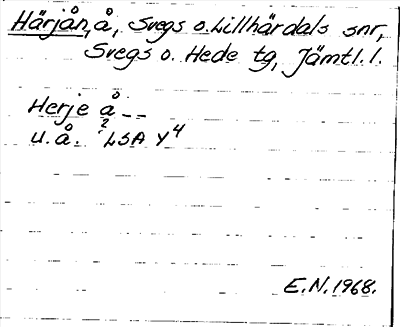 Härjån, å, Svegs o. Lillhärdals snr,
Svegs o. Hede tg, Jämtl. l.
Herje å --
u. å. 2 LSA Y4
E.N. 1968.